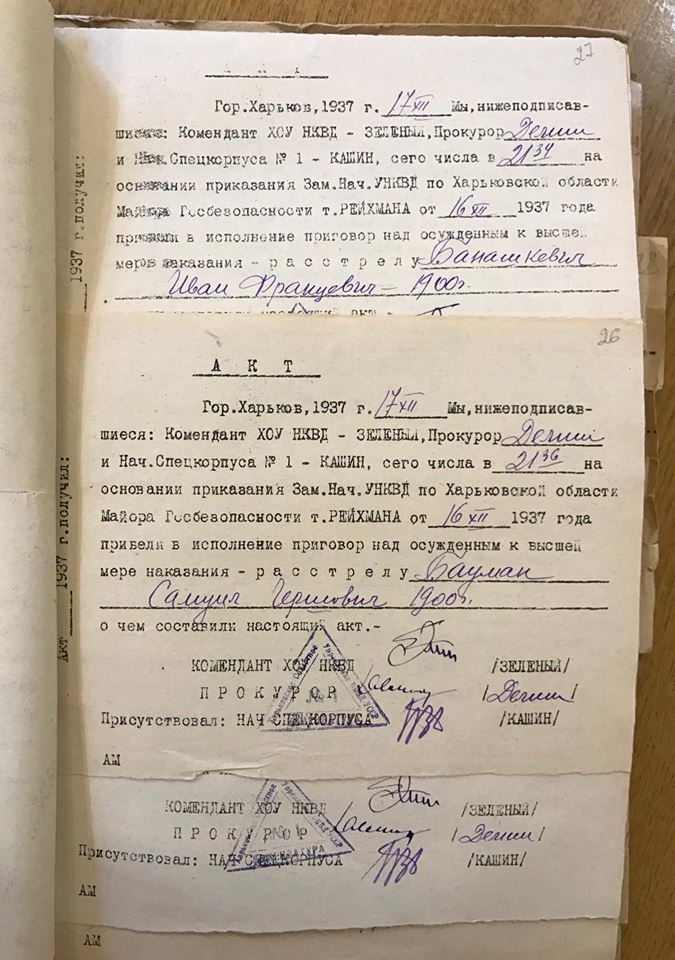 27
А К Т
Гор.Харьков, 1937 г. 17/XII Мы, нижеподписав-
шиеся: Комендант ХОУ НКВД - ЗЕЛЕНЫЙ, Прокурор
и Нач.Спецкорпуса № 1 - КАШИН, сего числа в 21 34 на
основании приказания Зам.Нач.УНКВД по Харьковской области
Майора Госбезопасности т.РЕЙХМАНА от 16/XII 1937 года
привели в исполнение приговор над осужденным к высшей
мере наказания - р а с с т р е л у Банашкевич
Иван Францевич - 1900г.
1937 г.получил:
26
А К Т
Гор.Харьков, 1937 г. 17/XII Мы, нижеподписав-
шиеся: Комендант ХОУ НКВД - ЗЕЛЕНЫЙ, Прокурор
и Нач.Спецкорпуса № 1 - КАШИН, сего числа в 21 36 на
основании приказания Зам.Нач.УНКВД по Харьковской области
Майора Госбезопасности т.РЕЙХМАНА от 16/XII 1937 года
привели в исполнение приговор над осужденным к высшей
мере наказания - р а с с т р е л у Бауман
Самуил Гершович 1900г.
о чем составили настоящий акт.-
КОМЕНДАНТ ХОУ НКВД /ЗЕЛЕНЫЙ/
П Р О К У Р О Р
Присутствовал: НАЧ СПЕЦКОРПУСА /КАШИН/
АМ
Акт 1937 г.получил:
КОМЕНДАНТ ХОУ НКВД /ЗЕЛЕНЫЙ/
П Р О К У Р О Р
Присутствовал: НАЧ СПЕЦКОРПУСА /КАШИН/
АМ
АМ